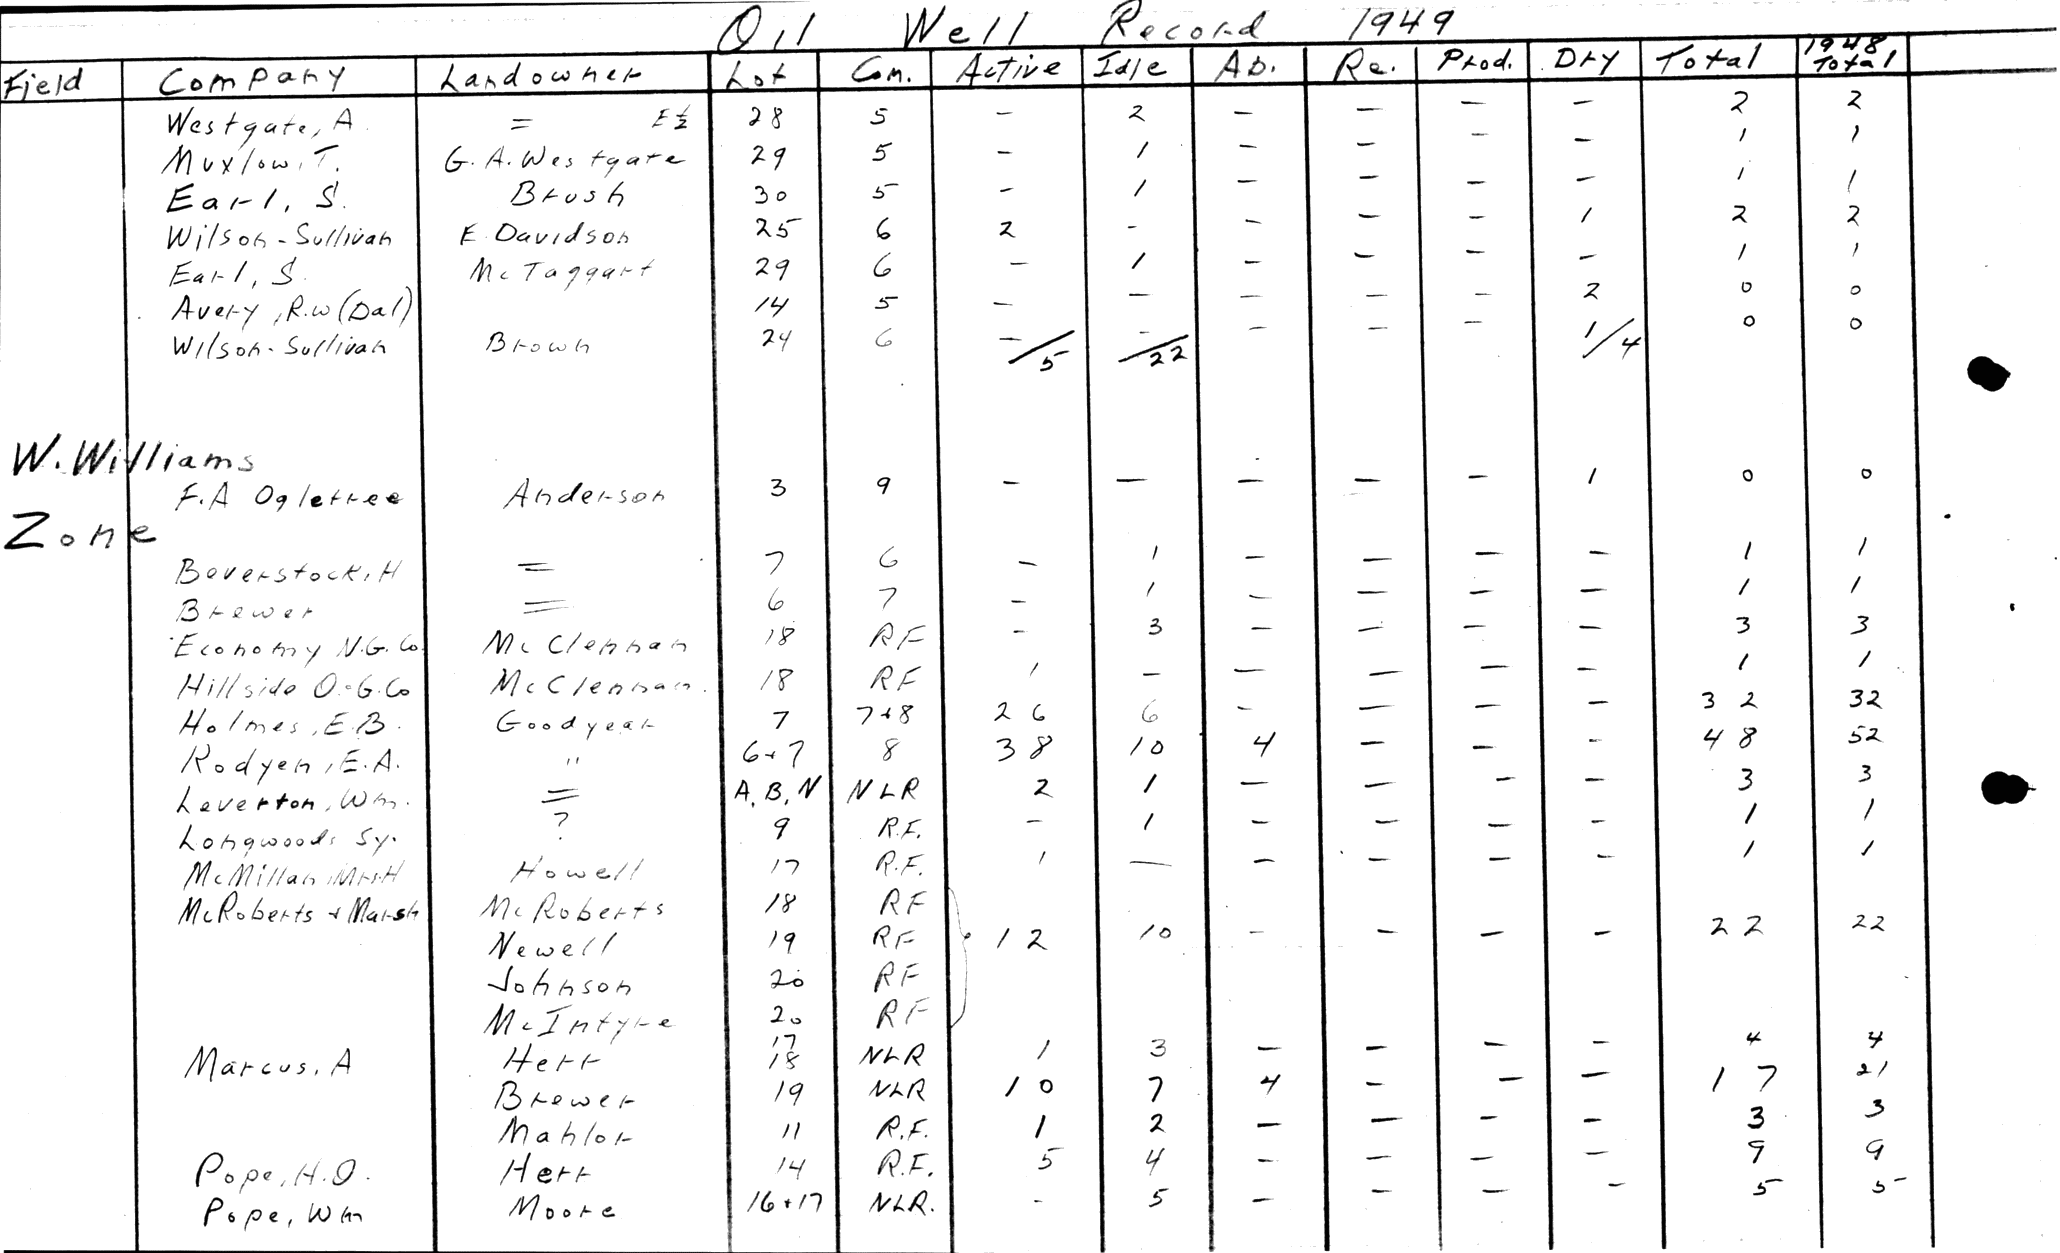 Oil Well Record 1949
Field Company Landowner Lot Con. Active Idle Ab. Re. Prod. Dry Total 1948 Total
Westgate, A. = E½ 28 5 – 2 – – – – 2 2
Muxlow, T. G. A. Westgate 29 5 – 1 – – – – 1 1
Earl, S. Brush 30 5 – 1 – – – – 1 1
Wilson-Sullivan E. Davidson 25 6 2 - – – – 1 2 2
Earl, S. McTaggart 29 6 – 1 – – – – 1 1
Avery, R.W (Dal) 14 5 – – – – – 2 0 0
Wilson-Sullivan Brown 24 6 –/5 -/22 – – – 1/4 0 0
W. Williams
F.A Ogletree Anderson 3 9 – – – – – 1 0 0
Zone
Beverstock, H = 7 6 – 1 – – – – 1 1
Brewer = 6 7 – 1 – – – – 1 1
Economy N.G. Co. McClennan 18 RF – 3 – – – – 3 3
Hillside O.-G. Co McClennan. 18 RF 1 – – – – – 1 1
Holmes, E.B. Goodyear 7 7+8 26 6 - – – – 32 32
Rodyen, E.A. " 6+7 8 38 10 4 – – – 48 52
Leverton, Wm. = A, B, N NLR 2 1 – – – – 3 3
Longwoods Sy. ? 9 R.F. – 1 – – – – 1 1
McMillan, Mrs. H Howell 17 R.F. 1 — – – – – 1 1
McRoberts + Marsh McRoberts 18 RF
Newell 19 RF 12 10 – – – – 22 22
Johnson 20 RF
McIntyre 20 RF
17
Marcus, A Herr 18 NLR 1 3 – – – – 4 4
Brewer 19 NLR 10 7 4 – – – 17 21
Mahlor 11 R.F. 1 2 – – – – 3 3
Pope, H.O. Herr 14 R.F. 5 4 – – – – 9 9
Pope, Wm Moore 16+17 NLR. - 5 – – – – 5 5